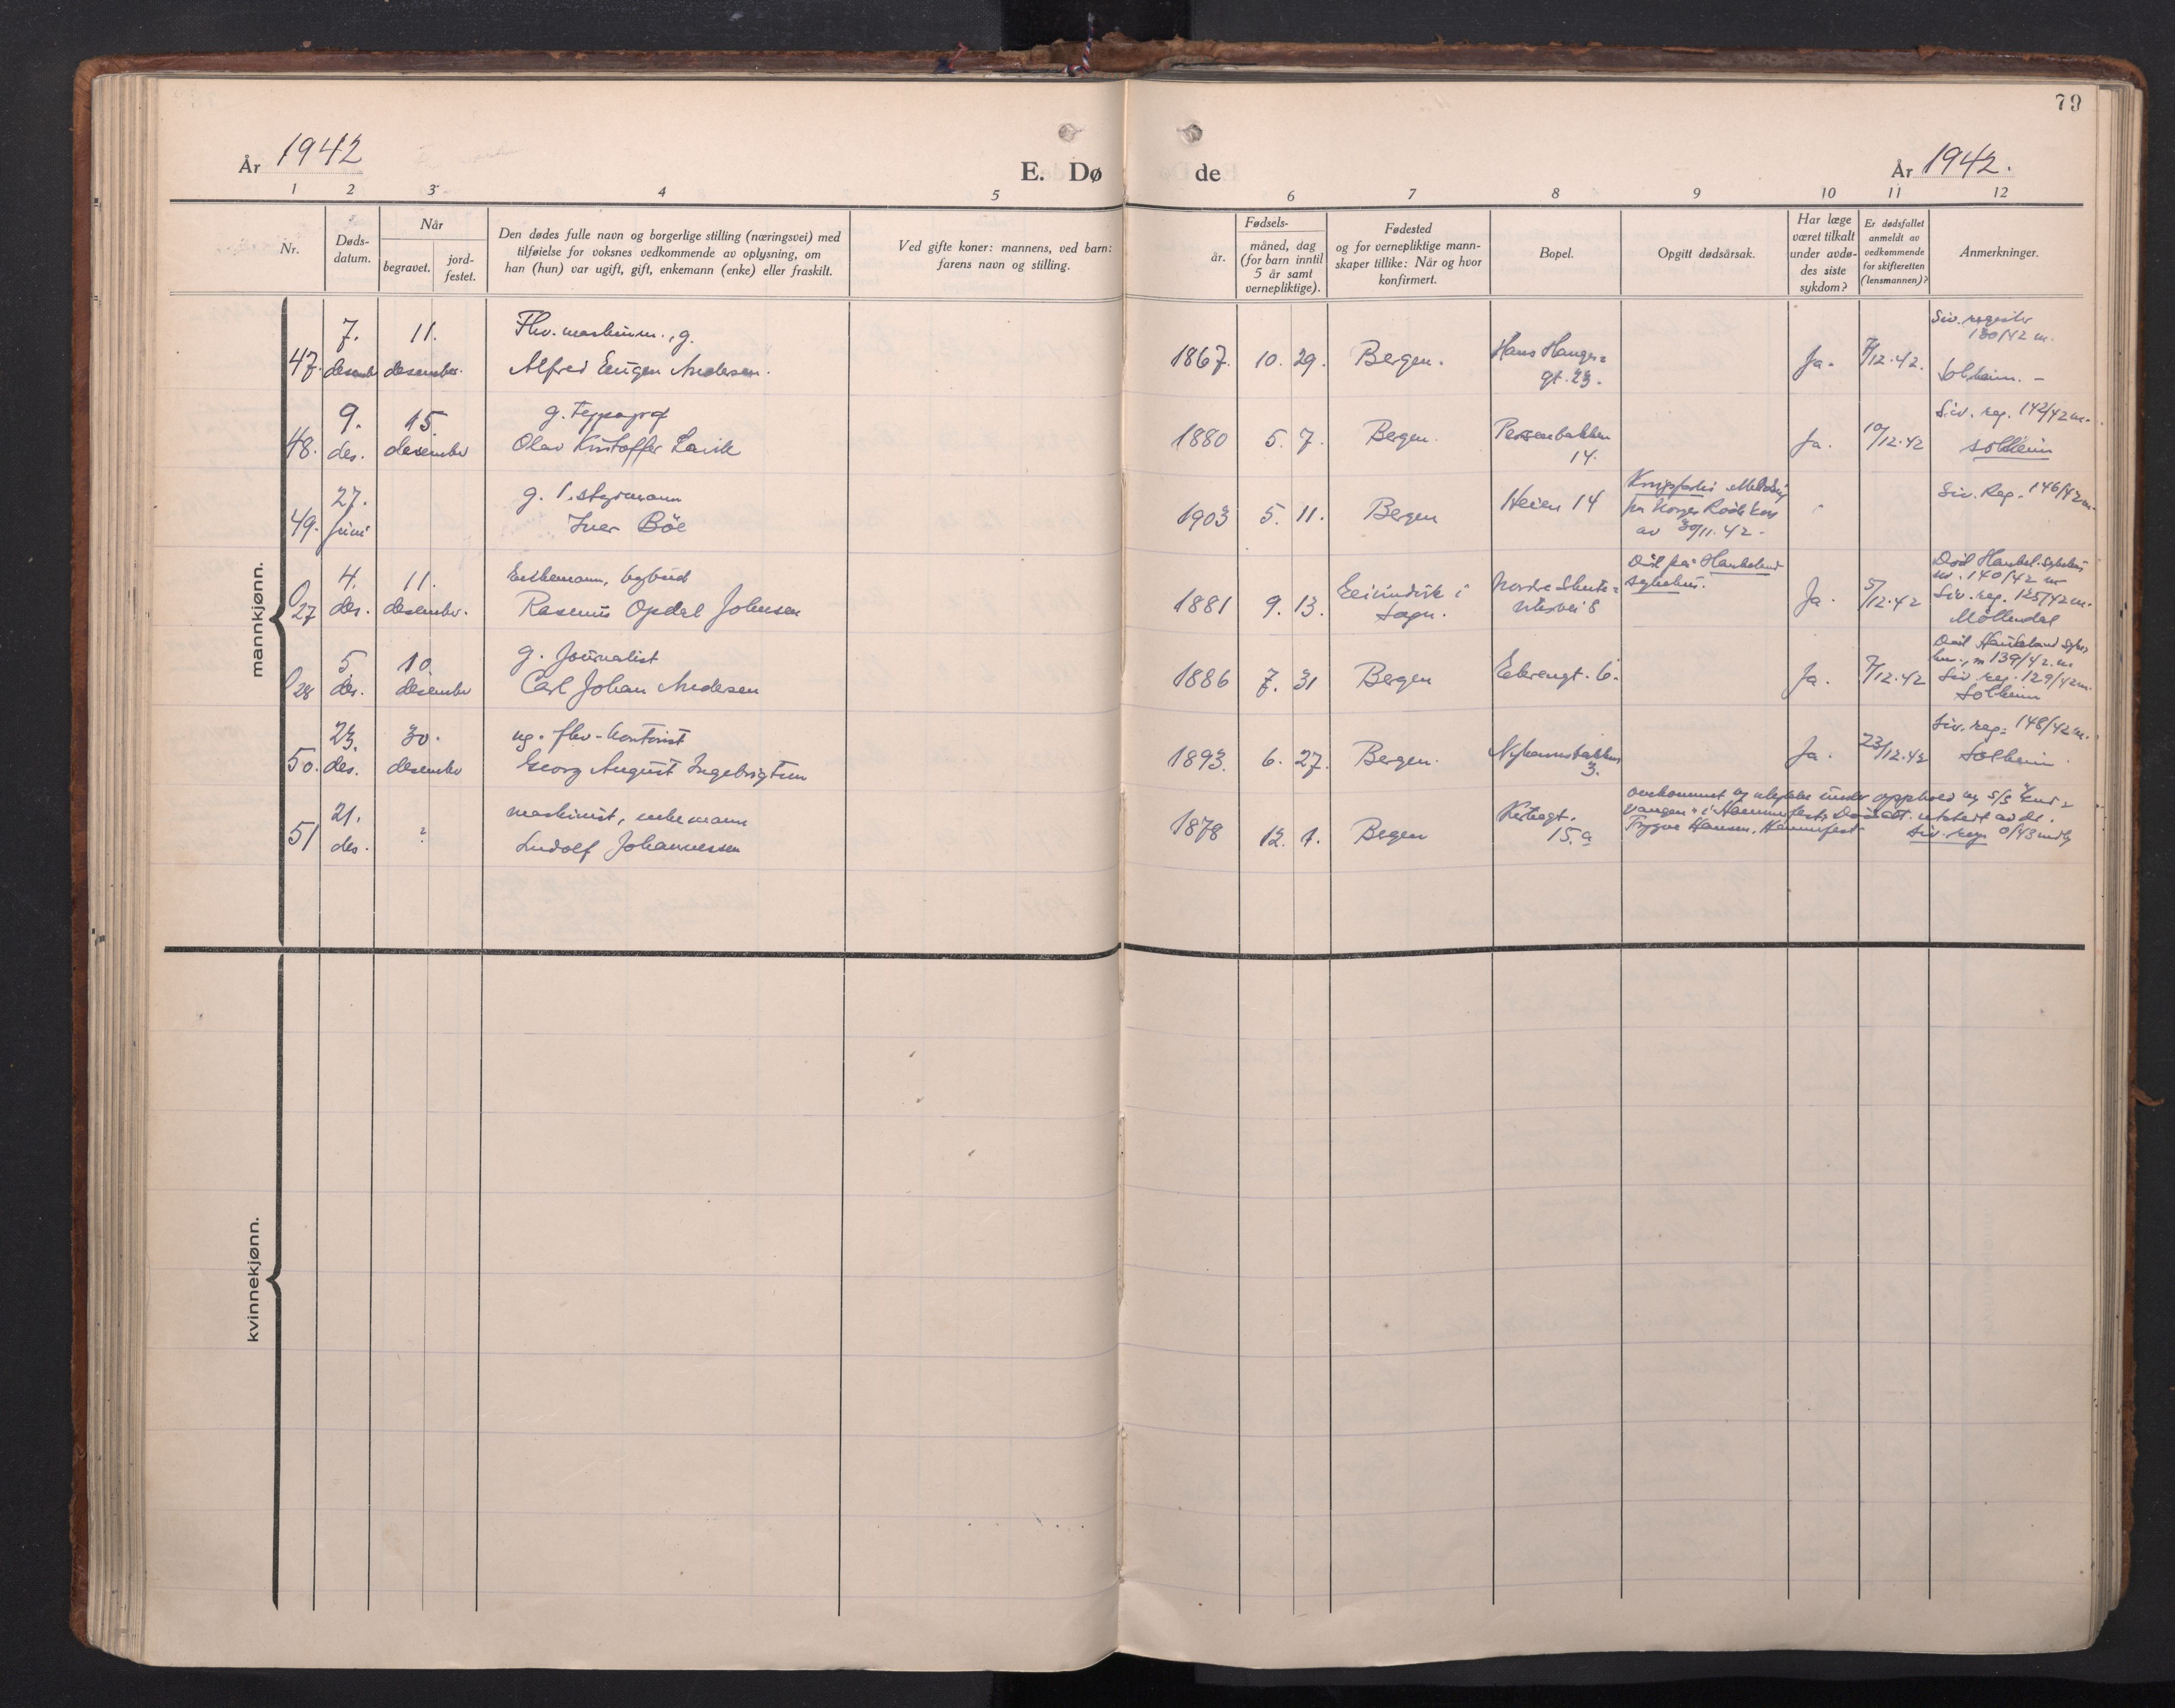 79
År 1942
E. Døde
År 1942.
1 2 3 4 5 6 7 8 9 10 11 12
Nr.
Døds-
datum.
Når
begravet.
jord-
festet.
Den dødes fulle navn og borgerlige stilling (næringsvei) med
tilføielse for voksnes vedkommende av oplysning, om
han (hun) var ugift, gift, enkemann (enke) eller fraskilt.
Ved gifte koner: mannens, ved barn:
farens navn og stilling.
Fødsels-
år.
måned, dag
(for barn inntil
5 år samt
vernepliktige).
Fødested
og for vernepliktige mann-
skaper tillike: Når og hvor
konfirmert.
Bopel.
Opgitt dødsårsak.
Har læge
været tilkalt
under avdø-
des siste
sykdom?
Er dødsfallet
anmeldt av
vedkommende
for skifteretten
(lensmannen)?
Anmerkninger.
mannkjønn.
7. 11. Fhv. maskinm., g. Siv. register
130/42 m.
47. desemb desember. Alfred Eugen Andersen. 1867. 10. 29. Bergen. Hans Hauges= Ja. 7/12.42.
gt. 23. Solheim. –
9. 15. g. typograf Siv. reg. 142/42 m.
48. des. desember Olav Kristoffer Lavik 1880 5. 7. Bergen. Persenbakken Ja. 10/12.42
14. Solheim
27. g. 1. styrmann Siv. Reg. 146/42 m.
49. juni Iver Böe 1903 5. 11. Bergen Heien 14 Krigsforlis Melding
fra Norges Röde Kors
av 30/11.42.
4. 11. Enkemann, bybud Död på Haukeland
sykehus. Död Haukel. sykehus
nr. 140/42 m
27 des. desember. Rasmus Opdal Johnsen 1881 9. 13. Eivindvik i
Sogn. Nordre Skute=
viksvei 8 Ja. 5/12.42 Siv. reg. 125/42 m.
Möllendal
5. 10. g. Journalist Död Haukeland syke
hus, nr 139/42 m
28 des. desember Carl Johan Andersen 1886 7. 31 Bergen Ja. 7/12.42 Siv. reg. 129/42 m.
Solheim
23. 30. ug. fhv. kontorist Siv. reg. 148/42 m.
50. des. desember Georg August Ingebrigtsen 1893. 6. 27. Bergen. 3. Ja. 23/12.42 Solheim
21. maskinist, enkemann omkommet ved ulykke under opphold og S/S
vangen i Hammerfest. Dödsatt. utstedt av dr.
51 des. ? Ludolf Johannessen 1878 12. 1. Bergen 15.a Trygve Hansen, Hammerfest. Siv. reg. 0/43
kvinnekjønn.